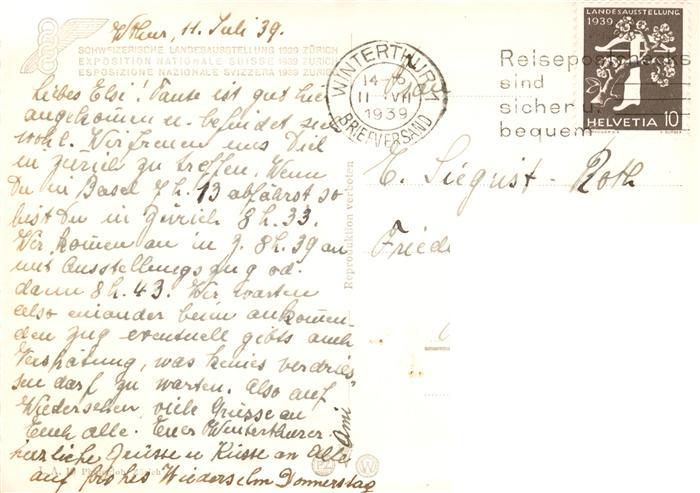 W'thur, 11. Juli 39.
SCHWEIZERISCHE LANDESAUSSTELLUNG 1939 ZÜRICH
EXPOSITION NATIONALE SUISSE 1939 ZURICH
ESPOSIZIONE NAZIONALE SVIZZERA 1939 ZURIGO
Liebes Elsi! Tante ist gut hier
angekommen u. befindet sich
wohl. Wir freuen uns Dich
in Zürich zu treffen. Wenn
Du in Basel 7 h. 13 abfährst so
bist Du in Zürich 8 h. 33.
Wir komen an in Z. 8 h. 39 an
mit Ausstellungszug od.
dann 8 h. 43. Wir warten
also einander beim ankomen-
den Zug eventuell gibts auch
Verspätung, was keines verdries-
sen darf zu warten. Also auf
Wiedersehen, viele Grüsse an
Euch alle. Euer Winterthurer.
herzliche Grüsse u Küsse an Alle
auf frohes Wiedersehn Donnerstag
Ami
Reproduktion verboten
WINTERTHUR 1
11 VII
1939
BRIEFVERSAND
Reisepostchecks
sind
sicher u.
bequem
LANDESAUSSTELLUNG
1939
HELVETIA 10
E. Siegrist-Roth
Friede